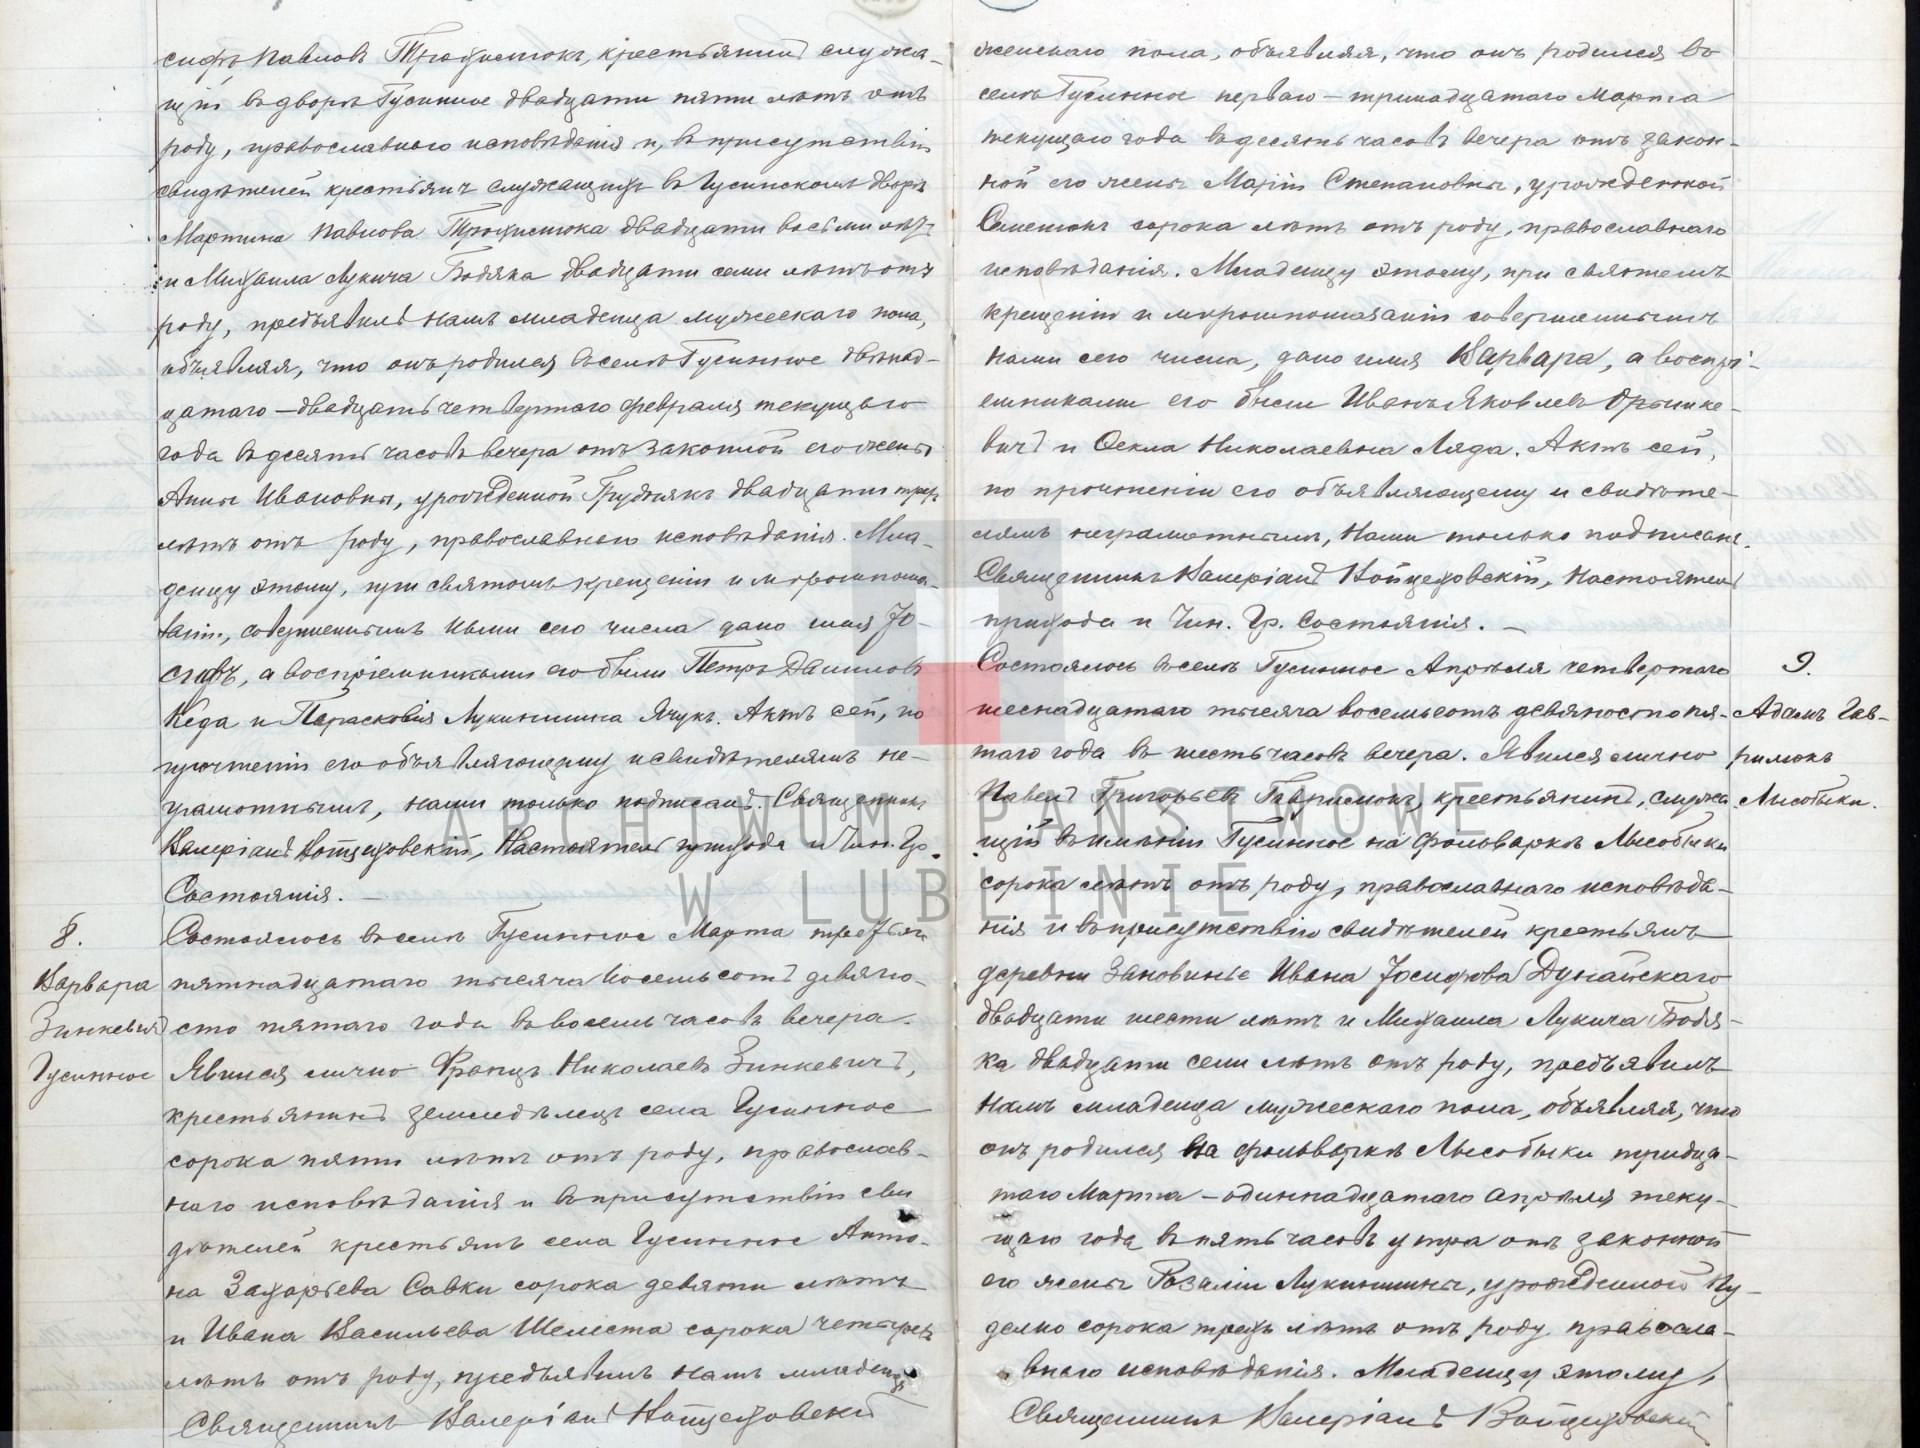 сифъ Павловъ Трофистюкъ, крестьянинъ служа-
щій въ дворѣ Гусинное двадцати пяти лѣтъ отъ
роду, православнаго исповѣданія и, въ присутствіи
свидѣтелей крестьянъ служащихъ въ Гусинскомъ дворѣ
Мартина Павлова Трофистюка двадцати восьми лѣтъ
и Михаила Лукича Бодяка двадцати семи лѣтъ отъ
роду, предъявилъ намъ младенца мужескаго пола,
объявляя, что онъ родился въ селѣ Гусинное двѣнад-
цатаго — двадцать четвертаго февраля текущаго
года въ десять часовъ вечера отъ законной его жены
Анны Ивановны, урожденной Грудзякъ двадцати трехъ
лѣтъ отъ роду, православнаго исповѣданія. Мла-
денцу этому, при святомъ крещеніи и миропома-
заніи, совершенныхъ нами сего числа дано имя Іо-
сифъ, а воспріемниками его были Петръ Даниловъ
Кеда и Парасковія Лукинишна Ячукъ. Актъ сей, по
прочтеніи его объявляющему и свидѣтелямъ не-
грамотнымъ, нами только подписанъ. Священникъ
Валеріанъ Войцеховскій, Настоятель прихода и Чин. Гр.
Состоянія. —
8.
Варвара
Зинкевичъ
Гусинное
Состоялось въ селѣ Гусинное Марта третьяго
пятнадцатаго тысяча восемьсотъ девяно-
сто пятаго года въ восемь часовъ вечера.
Явился лично Францъ Николаевъ Зинкевичъ,
крестьянинъ земледѣлецъ села Гусинное
сорока пяти лѣтъ отъ роду, православ-
наго исповѣданія и въ присутствіи сви
дѣтелей крестьянъ села Гусинное Анто-
на Захарьева Савки сорока девяти лѣтъ
и Ивана Васильева Шелеста сорока четырехъ
лѣтъ отъ роду, предъявилъ намъ младенца
Священникъ Валеріанъ Войцеховскій
женскаго пола, объявляя, что онъ родился въ
селѣ Гусинное перваго — тринадцатаго Марта
текущаго года въ десять часовъ вечера отъ закон-
ной его жены Маріи Степановны, урожденной
сорока лѣтъ отъ роду, православнаго
исповѣданія. Младенцу этому, при святомъ
крещеніи и миропомазаніи совершенныхъ
нами сего числа, дано имя Варвара, а воспрі-
емниками его были Иванъ Яковлевъ
вичъ и Ѳекла Николаевна Ляда. Актъ сей,
по прочтеніи его объявляющему и свидѣте-
лямъ неграмотнымъ, нами только подписанъ.
Священникъ Валеріанъ Войцеховскій, Настоятель
прихода и Чин. Гр. Состоянія. —
Состоялось въ селѣ Гусинное Апрѣля четвертаго
шеснадцатаго тысяча восемьсотъ девяносто пя-
таго года въ шесть часовъ вечера. Явился лично
Павелъ Григорьевъ Гаврилюкъ, крестьянинъ, служа
щій въ имѣніи Гусинное на фольваркѣ Лысобыки
сорока лѣтъ отъ роду, православнаго исповѣда-
нія и въ присутствіи свидѣтелей крестьянъ
деревни Зановинье Ивана Іосифова Дунайскаго
двадцати шести лѣтъ и Михаила Лукича Бодя-
ка двадцати семи лѣтъ отъ роду, предъявилъ
намъ младенца мужескаго пола, объявляя, что
онъ родился на фольваркѣ Лысобыки тридца-
таго Марта — одиннадцатаго Апрѣля теку-
щаго года въ пять часовъ утра отъ законной
его жены Розаліи Лукинишны, урожденной Ку-
делко сорока трехъ лѣтъ отъ роду правосла-
внаго исповѣданія. Младенцу этому,
Священникъ Валеріанъ Войцеховскій
9.
Адамъ Гав-
рилюкъ
Лысобыки.
ARCHIWUM PAŃSTWOWE
W LUBLINIE